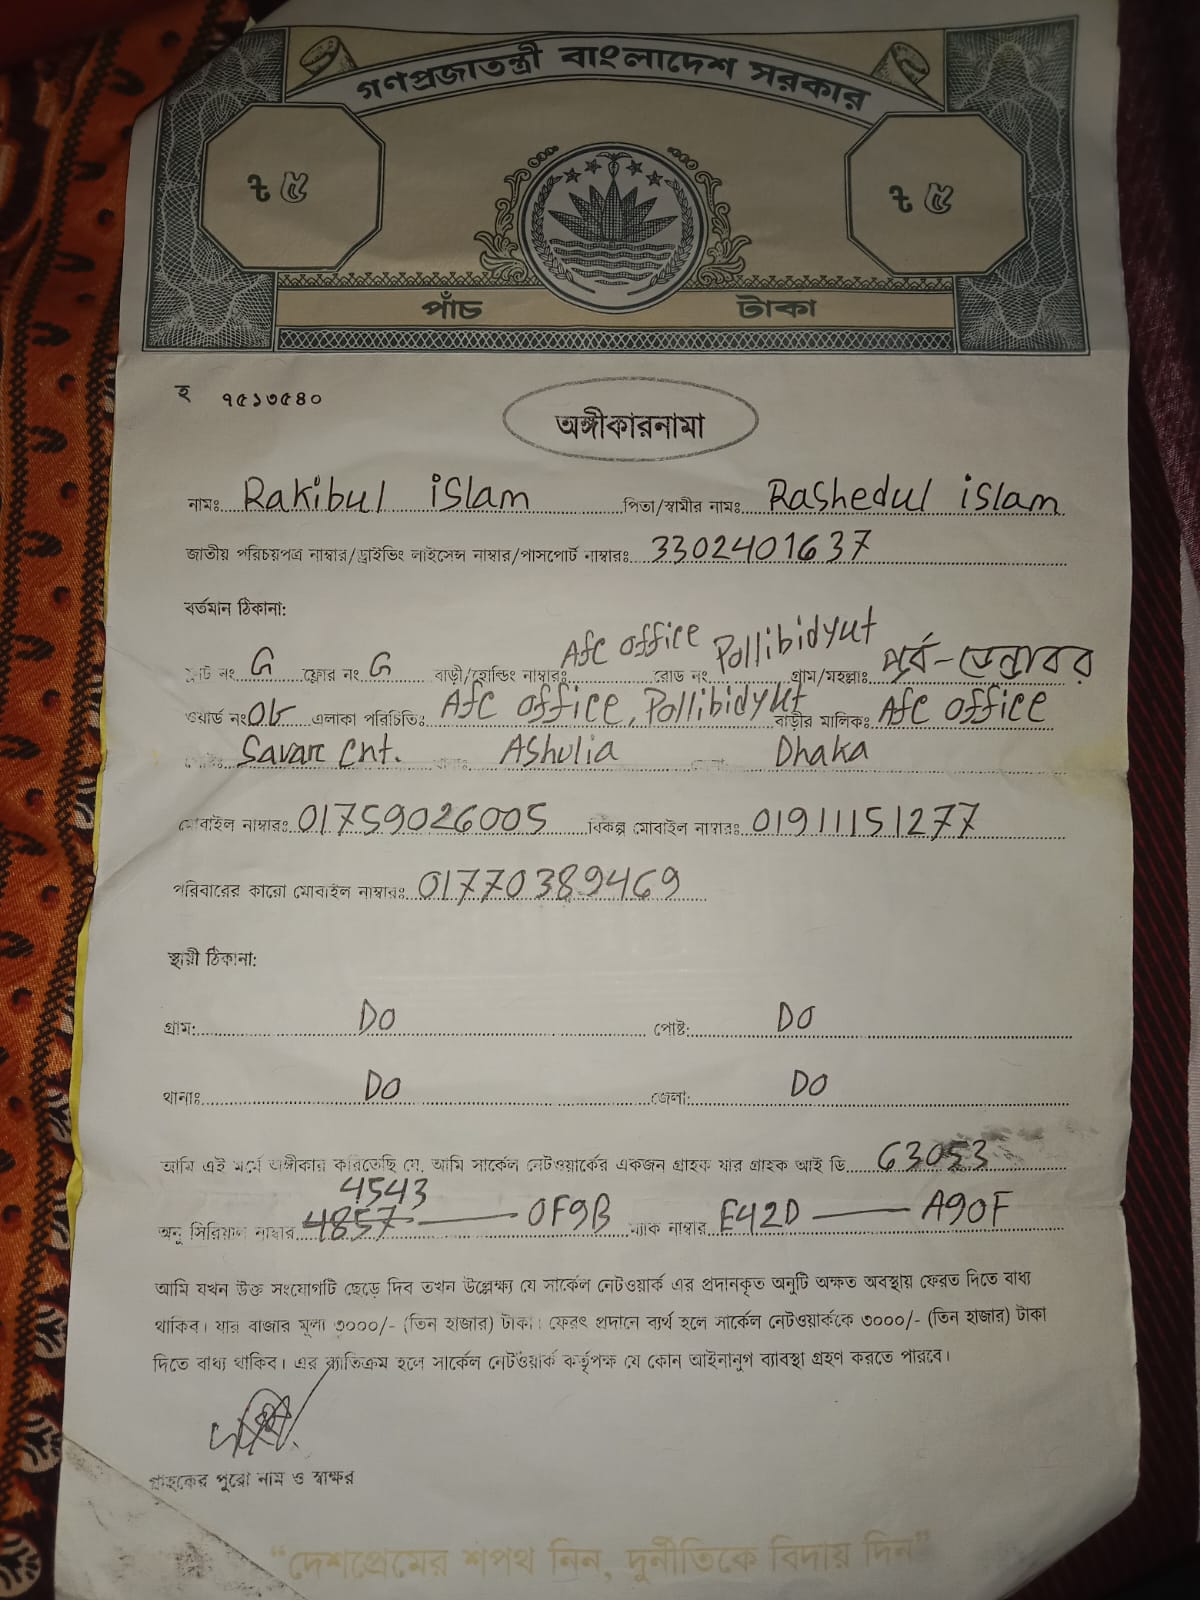 গণপ্রজাতন্ত্রী বাংলাদেশ সরকার
৳ ৫ ৳ ৫
পাঁচ টাকা
হ ৭৫১৩৫৪০
অঙ্গীকারনামা
নামঃ Rakibul islam পিতা/স্বামীর নামঃ Rashedul islam
জাতীয় পরিচয়পত্র নাম্বার/ড্রাইভিং লাইসেন্স নাম্বার/পাসপোর্ট নাম্বারঃ 3302401637
বর্তমান ঠিকানা:
নং G ফ্লোর নং G বাড়ী/হোল্ডিং নাম্বারঃ Afc office রোড নং Pollibidyut গ্রাম/মহল্লাঃ
ওয়ার্ড নং এলাকা পরিচিতিঃ Afc office, Pollibidyut বাড়ীর মালিকঃ Afc office
Savar Cnt. Ashulia Dhaka
মোবাইল নাম্বারঃ 01759026005 বিকল্প মোবাইল নাম্বারঃ 01911151277
পরিবারের কারো মোবাইল নাম্বারঃ 01770389469
স্থায়ী ঠিকানা:
গ্রাম: DO পোষ্ট: DO
থানাঃ DO জেলা: DO
আমি এই মর্মে অঙ্গীকার করিতেছি যে, আমি সার্কেল নেটওয়ার্কের একজন গ্রাহক যার গ্রাহক আই ডি 63053
4543
অনু সিরিয়াল নাম্বার 4857 0F9B ম্যাক নাম্বার E42D A90F
আমি যখন উক্ত সংযোগটি ছেড়ে দিব তখন উল্লেক্ষ্য যে সার্কেল নেটওয়ার্ক এর প্রদানকৃত অনুটি অক্ষত অবস্থায় ফেরত দিতে বাধ্য
থাকিব। যার বাজার মূল্য ৩০০০/- (তিন হাজার) টাকা। ফেরৎ প্রদানে ব্যর্থ হলে সার্কেল নেটওয়ার্ককে ৩০০০/- (তিন হাজার) টাকা
দিতে বাধ্য থাকিব। এর ব্যতিক্রম হলে সার্কেল নেটওয়ার্ক কর্তৃপক্ষ যে কোন আইনানুগ ব্যাবস্থা গ্রহণ করতে পারবে।
গ্রাহকের পুরো নাম ও স্বাক্ষর
“দেশপ্রেমের শপথ নিন, দুর্নীতিকে বিদায় দিন”